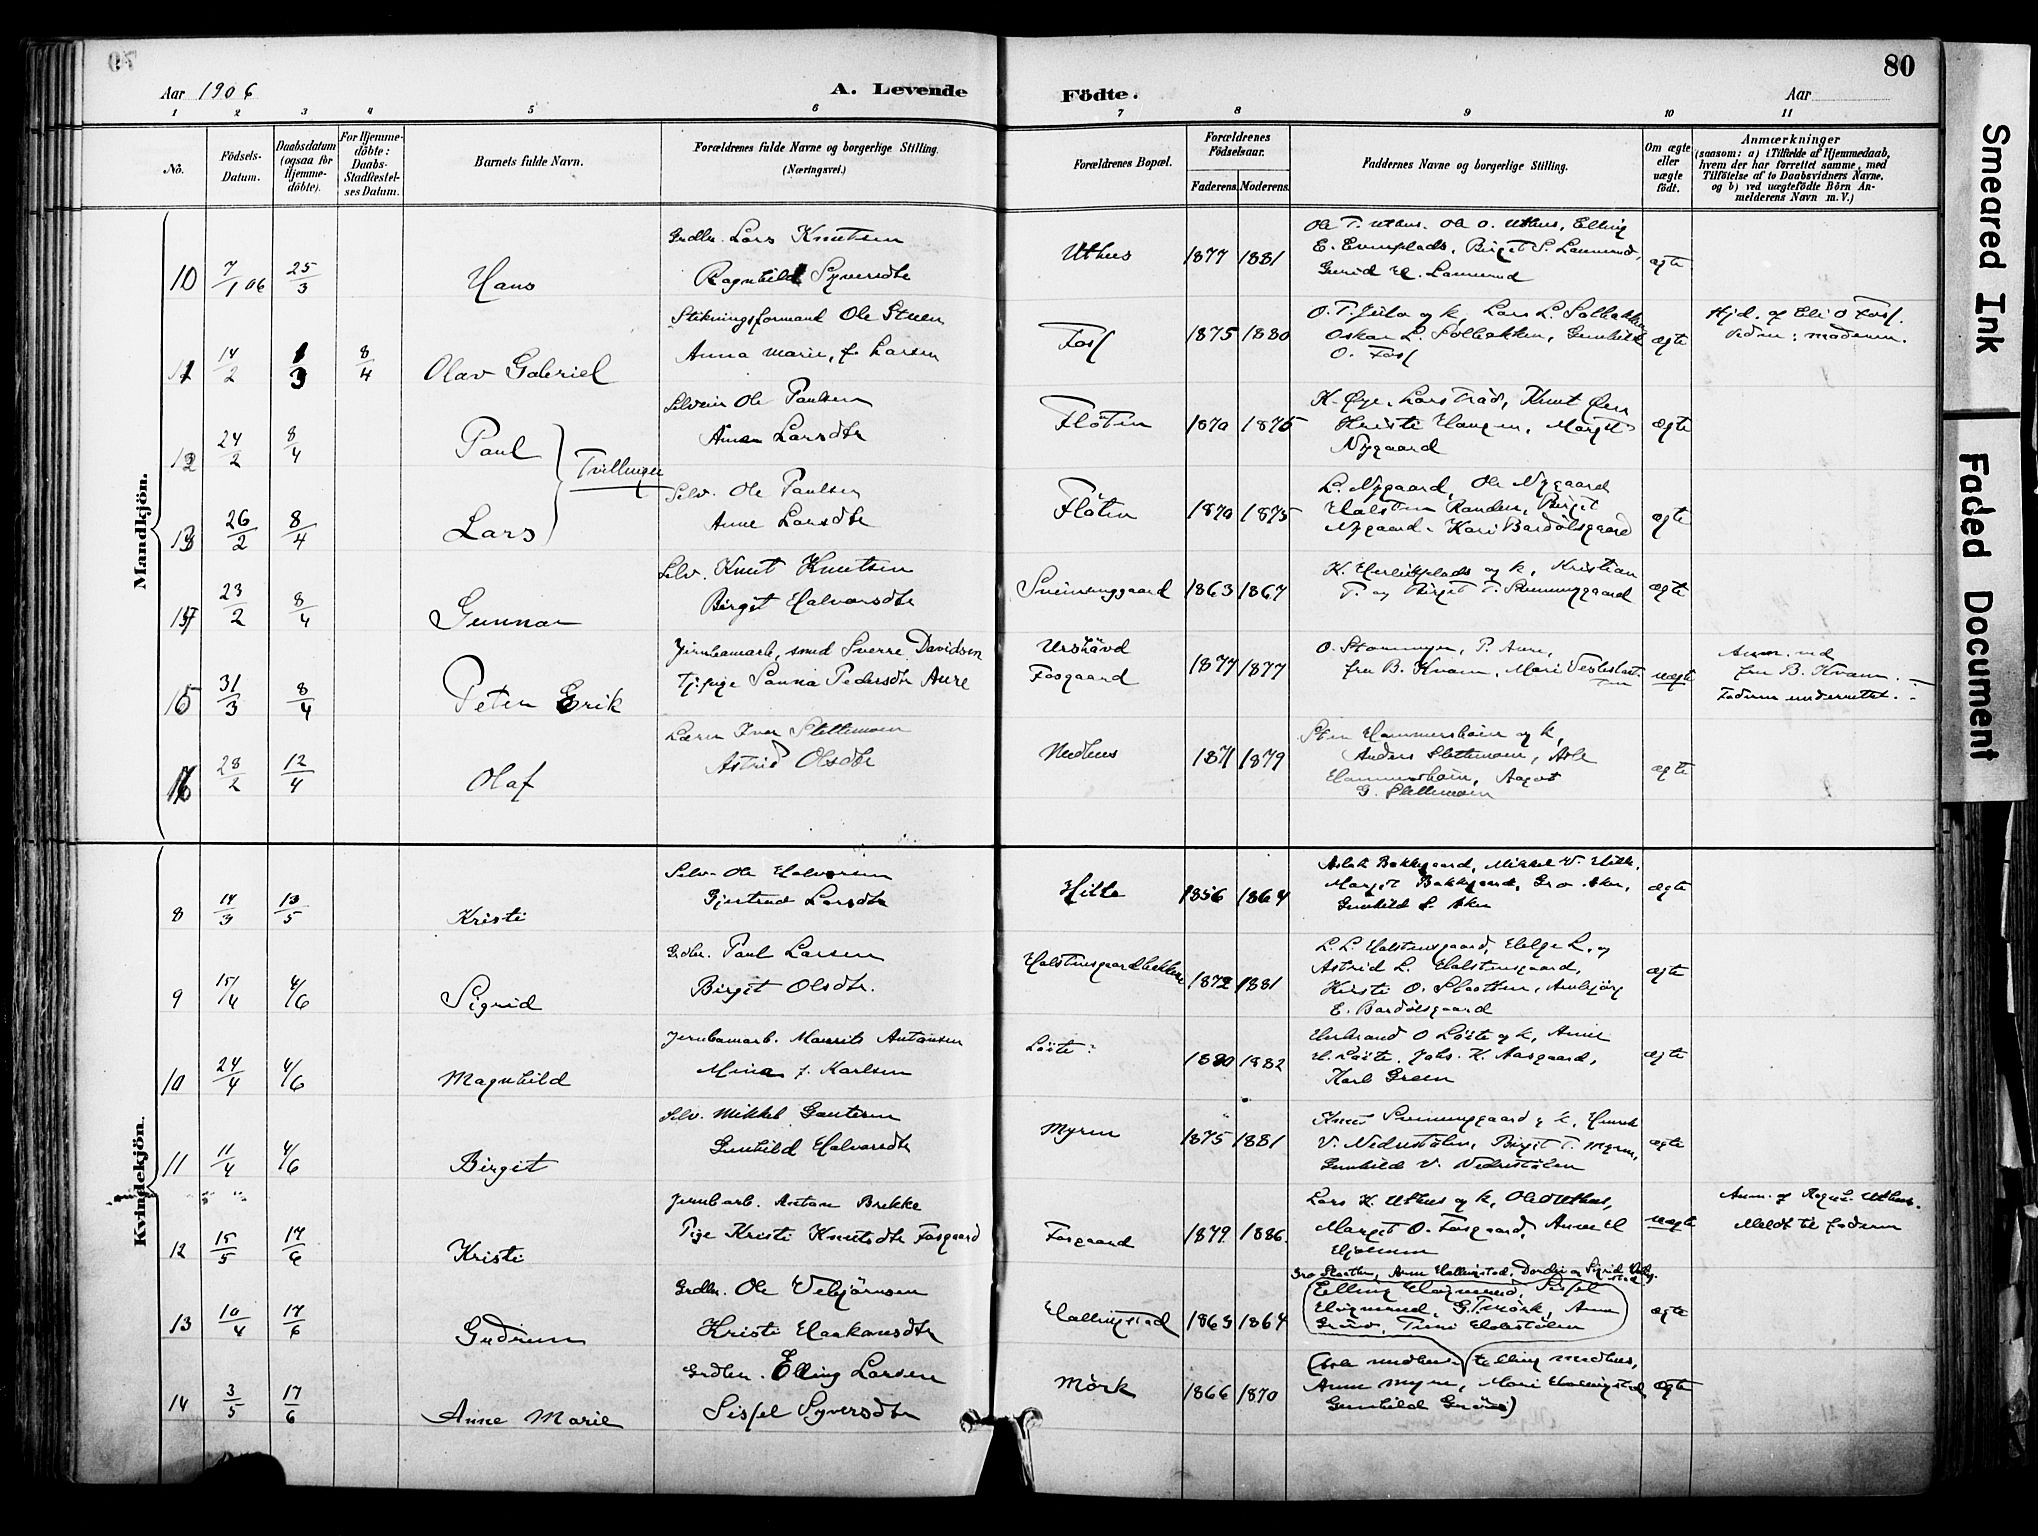 79
80
Aar 1906
A. Levende
Födte.
Aar
1 2 3 4 5 6 7 8 9 10 11
No.
Födsels-Datum.
Daabsdatum (ogsaa for Hjemme-döbte).
For Hjemme-döbte: Daabs-Stadfestel-ses Datum.
Barnets fulde Navn.
Forældrenes fulde Navne og borgerlige Stilling. (Næringsvei.)
Forældrenes Bopæl.
Forældrenes Födselsaar.
Faderens. Moderens.
Faddernes Navne og borgerlige Stilling.
Om ægte eller uægte födt.
Anmærkninger
(saasom: a) i Tilfælde af Hjemmedaab, hvem der har forrettet samme, med Tilföielse af to Daabsvidners Navne. og b) ved uægtefödte Börn An-melderens Navn m. V.)
Mandkjön.
10 7/1 06 25/3 Hans
Grdbr. Lars Knutsen
Ragnhild Syversdtr
Uthus 1877 1881
Ole T. Uthus. Ole O. Uthus, Elling
E. Evenplads, Birgit S.
ægte
11 14/2 1/3 8/4 Olav Gabriel
Stikningsformand Ole Stuen
Anna Marie, f. Larsen
Foss 1875 1880
O. T. og k, Lars L. Solbakken
Oskar L. Solbakken, Gunhild
O. Foss
ægte
Hjd. af Eli O Foss.
moderen.
12 24/2 8/4 Paul
Tvillinger
Ole Paulsen
Anne Larsdtr
Flöten 1870 1875
K. Öye, Lars Knut
Kristi Haugen, Margit
Nygaard
ægte
13 26/2 8/4 Lars
Selv. Ole Paulsen
Anne Larsdtr
Flöten 1870 1875
L. Nygaard, Ole Nygaard
Halsten Randen, Birgit
Nygaard, Kari Bardölsgaard
ægte
14 23/2 8/4 Gunnar
Selv. Knut Knutsen
Birgit Halvorsdtr
Sveinunggaard 1863 1867
K. og k, Kristian
T. og Birgit T. Sveinunggaard
ægte
15 31/3 8/4 Peter Erik
Jernbanearb, smed Sverre Davidsen
Tj.pige Sanna Pedersdtr Aure
Urshövd
Fosgaard 1877 1877
O. P. Aure,
fru B. Kvam, Mari
uægte
Anm. ved
fru B. Kvam.
Faderen underrettet.
16 28/2 12/4 Olaf
Lærer Iver Slettemoen
Astrid Olsdtr
Nedhus 1871 1879
Sten Hammersböen og k,
Anders Slettemoen, Asle
Hammersböen, Aagot
G. Slettemoen
ægte
Kvindekjön.
8 14/3 13/5 Kristi
Selv. Ole Halvorsen
Gjertrud Larsdtr
Hilte 1856 1864
Aslak Bakkegaard, Mikkel V. Hilte,
Margit Bakkegaard, Gro Aker,
Gunhild S. Aker
ægte
9 15/4 4/6 Sigrid
Grdbr. Paul Larsen
Birgit Olsdtr.
Halstensgaardbakken 1872 1881
L. L. Halstensgaard, Helge L. og
Astrid L. Halstensgaard,
Kristi O. Slaatten, Ambjörg
E. Bardölsgaard
ægte
10 24/4 4/6 Magnhild
Jernbanearb. Maurits Antonsen
Mina f. Karlsen
Löite: 1880 1882
Herbrand O Löite og k, Anne
H. Löite, Johs. K. Aasgaard,
Karl Green
ægte
11 11/4 4/6 Birgit
Selv. Mikkel Gautesen
Gunhild Halvorsdtr
Myren 1875 1881
Knut Sveinunggaard og k, Henrik
V. Nedrestölen, Birgit T. Myren,
Gunhild V. Nedrestölen
ægte
12 15/5 17/6 Kristi
Jernbarb. Anton Brekke
Pige Kristi Knutsdtr Fosgaard
Fosgaard 1879 1886
Lars K. Uthus og k, Ole O Uthus,
Margit O. Fosgaard, Anne H
uægte
Anm. af Ragn. L. Uthus.
Meldt til faderen
13 10/4 17/6 Gudrun
Grdbr. Ole Vebjörnsen
Kristi Haakonsdtr
Hallingstad 1863 1864
Gro Slaatten, Anne Hallingstad, Dordei og Sigrid
Elling Sissel
G. T. Mörk, Anne
ægte
14 3/5 17/6 Anne Marie
Grdbr. Elling Larsen
Sissel Syversdtr
Mörk 1866 1870
Elling Nedhus,
Anne Myre, Mari Hallingstad
Gunhild
ægte
Smeared Ink
Faded Document